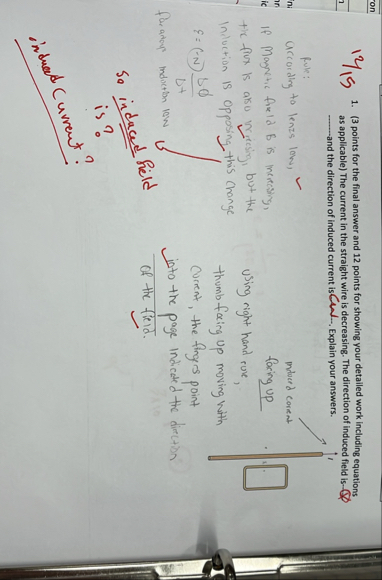 12/15
1. (3 points for the final answer and 12 points for showing your detailed work including equations
as applicable) The current in the straight wire is decreasing. The direction of induced field is
and the direction of induced current is CW. Explain your answers.
Rule:
According to lenzs law,
If Magnetic field B is increasing,
the flux is also increasing, but the
Induction is opposing this change
ε = (-N) ΔΦ
Δt
induction law
So induced field
is?
induced Current?
induced current
facing up
I
using right hand rule,
thumb facing up moving with
current, the fingers point
into the page indicated the direction
of the field.